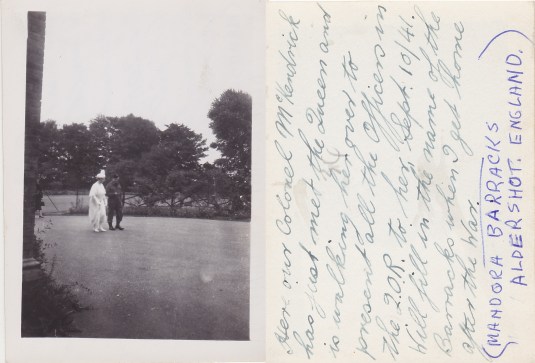 Here our Colonel McKendrick
has just met the Queen and
is walking her over to
present all the Officers in
the 2.O.R. to her, Sept. 10/41.
Will fill in the name of the
Barracks when I get home
after the War.
(MANDORA BARRACKS
ALDERSHOT. ENGLAND.)